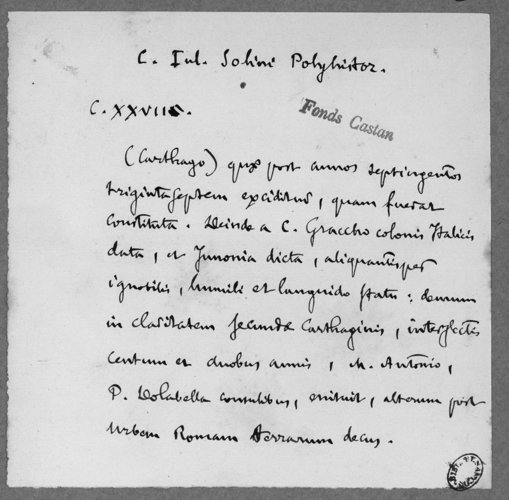 C. Iul. Solini Polyhistor.
C. XXVIII.
Fonds Castan
(Carthago) quæ post annos septingentos
triginta septem exciditur, quam fuerat
constituta. Deinde a C. Graccho colonis Italicis
data, et Junonia dicta, aliquantisper
ignobilis, humili et languido statu : demum
in claritatem secundæ Carthaginis, interjectis
centum et duobus annis, M. Antonio,
P. Dolabella consulibus, enituit, alterum post
Urbem Romam terrarum decus.